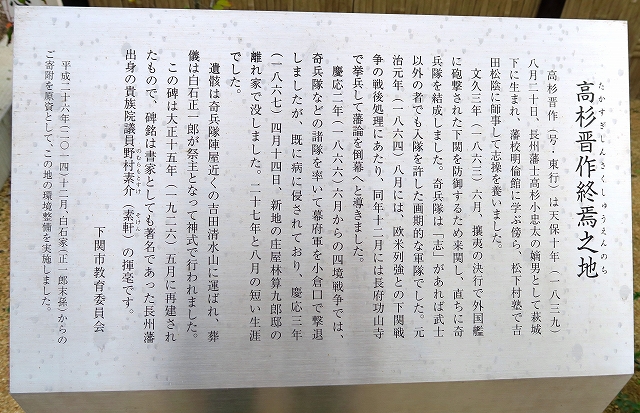 たかすぎしんさくしゅうえんのち
高杉晋作終焉之地
高杉晋作(号・東行)は天保十年(一八三九)
八月二十日、長州藩士高杉小忠太の嫡男として萩城
下に生まれ、藩校明倫館に学ぶ傍ら、松下村塾で吉
田松陰に師事して志操を養いました。
文久三年(一八六三)六月、攘夷の決行で外国艦
に砲撃された下関を防御するため来関し、直ちに奇
兵隊を結成しました。奇兵隊は「志」があれば武士
以外の者でも入隊を許した画期的な軍隊でした。元
治元年(一八六四)八月には、欧米列強との下関戦
争の戦後処理にあたり、同年十二月には長府功山寺
で挙兵して藩論を倒幕へと導きました。
慶応二年(一八六六)六月からの四境戦争では、
奇兵隊などの諸隊を率いて幕府軍を小倉口で撃退
しましたが、既に病に侵されており、慶応三年
(一八六七)四月十四日、新地の庄屋林算九郎邸の
離れ家で没しました。二十七年と八月の短い生涯
でした。
遺骸は奇兵隊陣屋近くの吉田清水山に運ばれ、葬
儀は白石正一郎が祭主となって神式で行われました。
この碑は大正十五年(一九二六)五月に再建され
たもので、碑銘は書家としても著名であった長州藩
出身の貴族院議員野村素介(素軒)の揮毫です。
下関市教育委員会
平成二十六年(二〇一四)十二月・白石家(正一郎末孫)からの
ご寄附を原資として、この地の環境整備を実施しました。